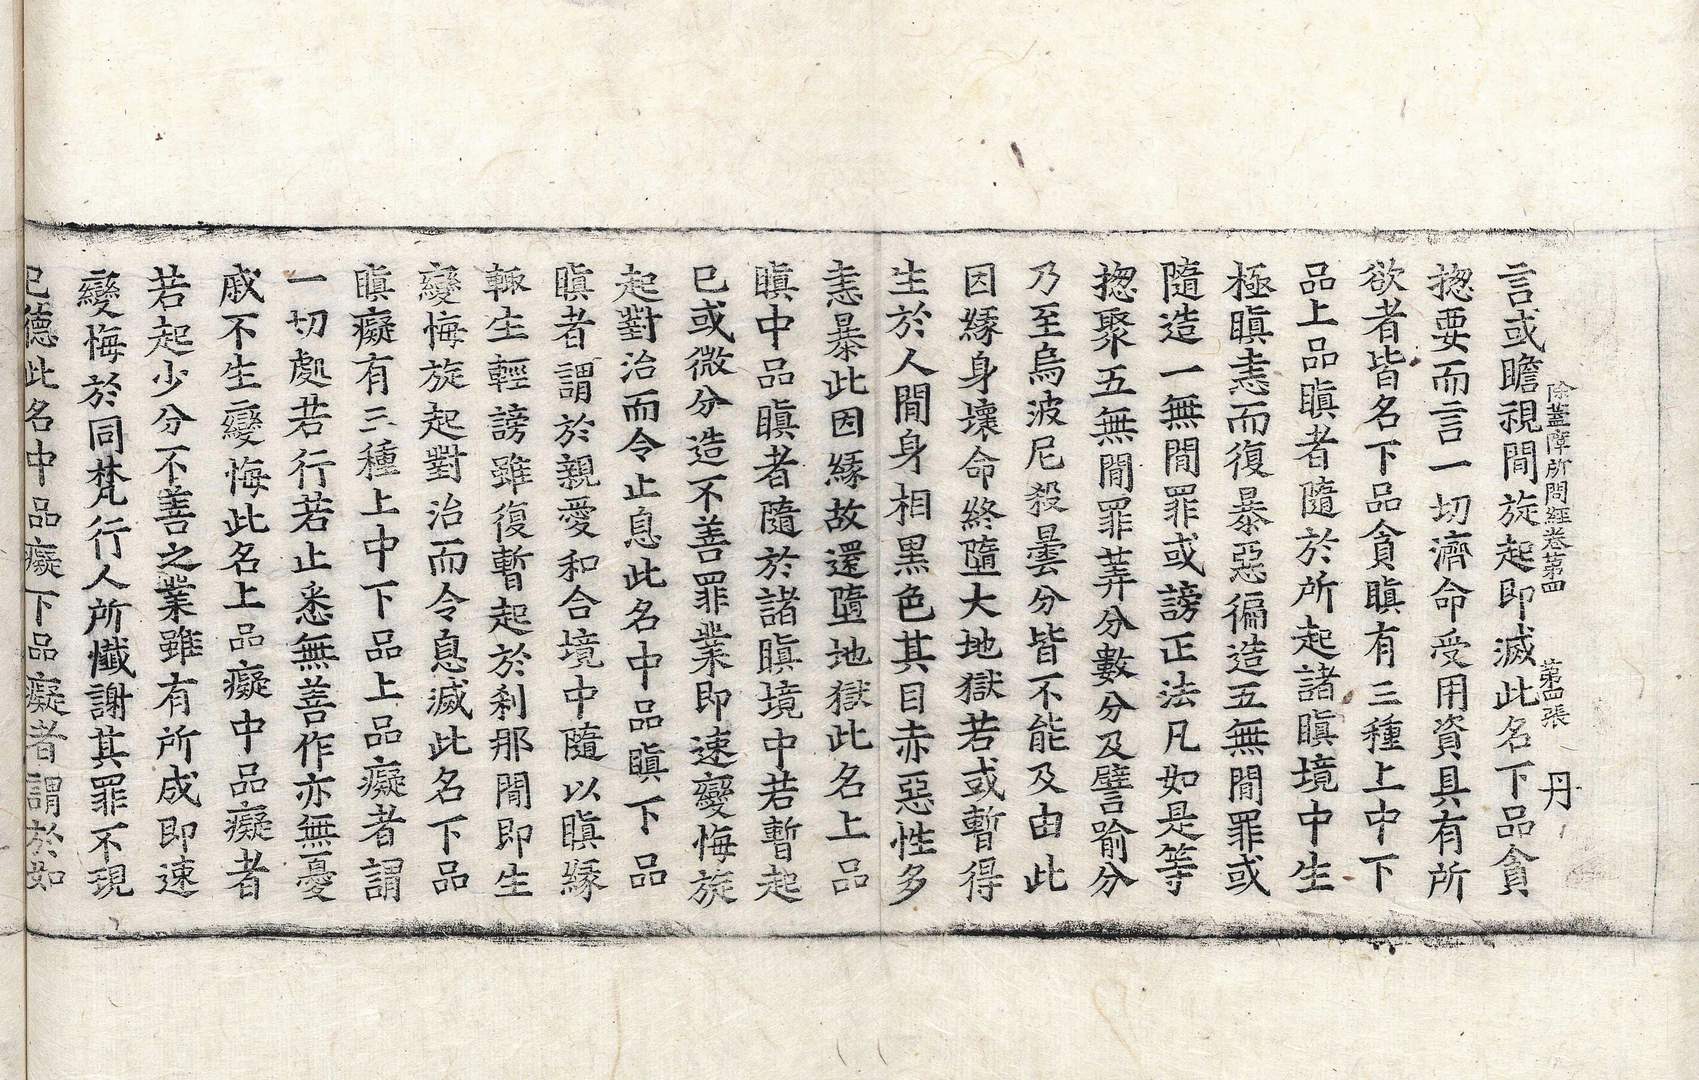 除蓋障所問經卷第四　第四張　丹
言或瞻視間旋起即滅此名下品貪
揔要而言一切濟命受用資具有所
欲者皆名下品貪瞋有三種上中下
品上品瞋者隨於所起諸瞋境中生
極瞋恚而復暴惡徧造五無間罪或
隨造一無間罪或謗正法凡如是等
揔聚五無間罪筭分數分及譬喻分
乃至烏波尼殺曇分皆不能及由此
因緣身壞命終墮大地獄若或暫得
生於人間身相黑色其目赤惡性多
恚暴此因緣故還墮地獄此名上品
瞋中品瞋者隨於諸瞋境中若暫起
已或微分造不善罪業即速變悔旋
起對治而令止息此名中品瞋下品
瞋者謂於親愛和合境中隨以瞋緣
輒生輕謗雖復暫起於剎那間即生
變悔旋起對治而令息滅此名下品
瞋癡有三種上中下品上品癡者謂
一切處若行若止悉無善作亦無憂
慼不生變悔此名上品癡中品癡者
若起少分不善之業雖有所成即速
變悔於同梵行人所懺謝其罪不現
已德此名中品癡下品癡者謂於如